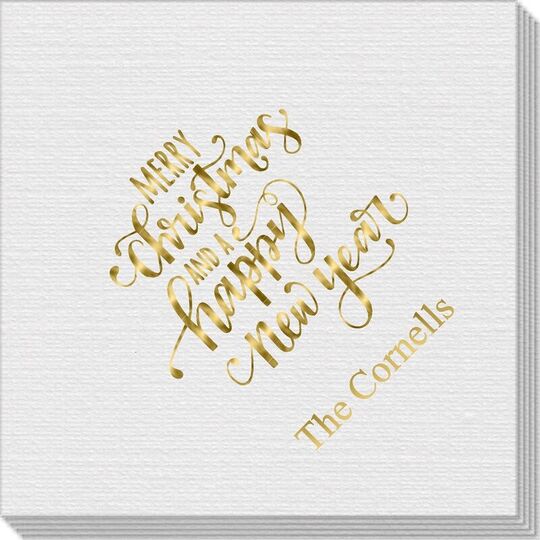 MERRY
Christmas
AND A
happy
New year
The Cornells